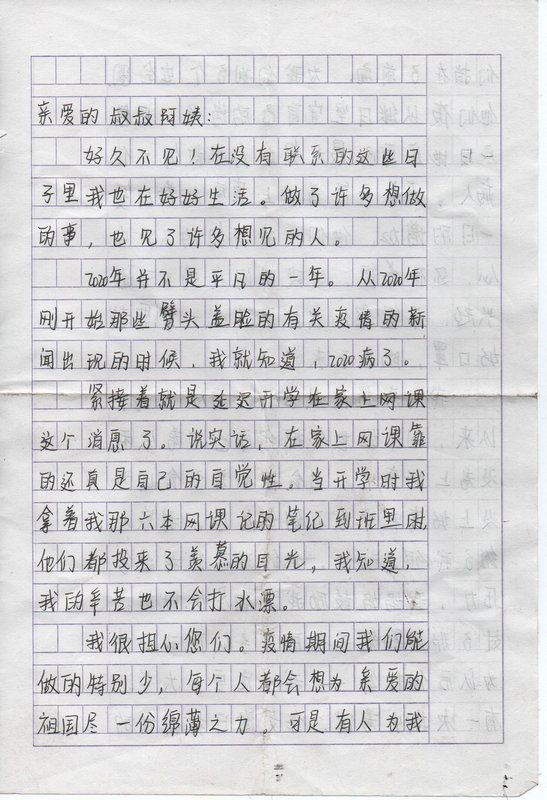 亲爱的叔叔阿姨：
好久不见！在没有联系的这些日
子里我也在好好生活。做了许多想做
的事，也见了许多想见的人。
2020年并不是平凡的一年。从2020年
刚开始那些劈头盖脸的有关疫情的新
闻出现的时候，我就知道，2020病了。
紧接着就是延迟开学在家上网课
这个消息了。说实话，在家上网课靠
的还真是自己的自觉性。当开学时我
拿着我那六本网课记的笔记到班里时
他们都投来了羡慕的目光，我知道，
我的辛苦也不会打水漂。
我很担心您们。疫情期间我们能
做的特别少，每个人都会想为亲爱的
祖国尽一份绵薄之力。可是有人为我